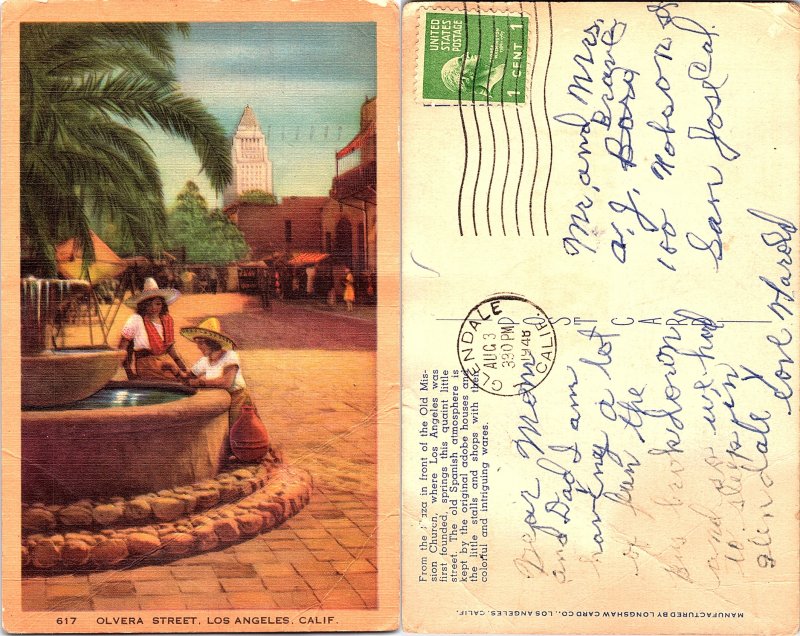 617 OLVERA STREET, LOS ANGELES, CALIF.
UNITED STATES POSTAGE
1 CENT
GLENDALE
AUG 3
3 30 PM
1948
CALIF.
POST CARD
Mr. and Mrs.
A. J.
100 Hobson St
San Jose Cal.
Dear Mom
and Dad I am
having a lot
of fun the
bus broke down
and so we had
to sleep in
Glendale
Love Harold
From the Plaza in front of the Old Mis-
sion Church, where Los Angeles was
first founded, springs this quaint little
street. The old Spanish atmosphere is
kept by the original adobe houses and
the little stalls and shops with their
colorful and intriguing wares.
MANUFACTURED BY LONGSHAW CARD CO., LOS ANGELES, CALIF.